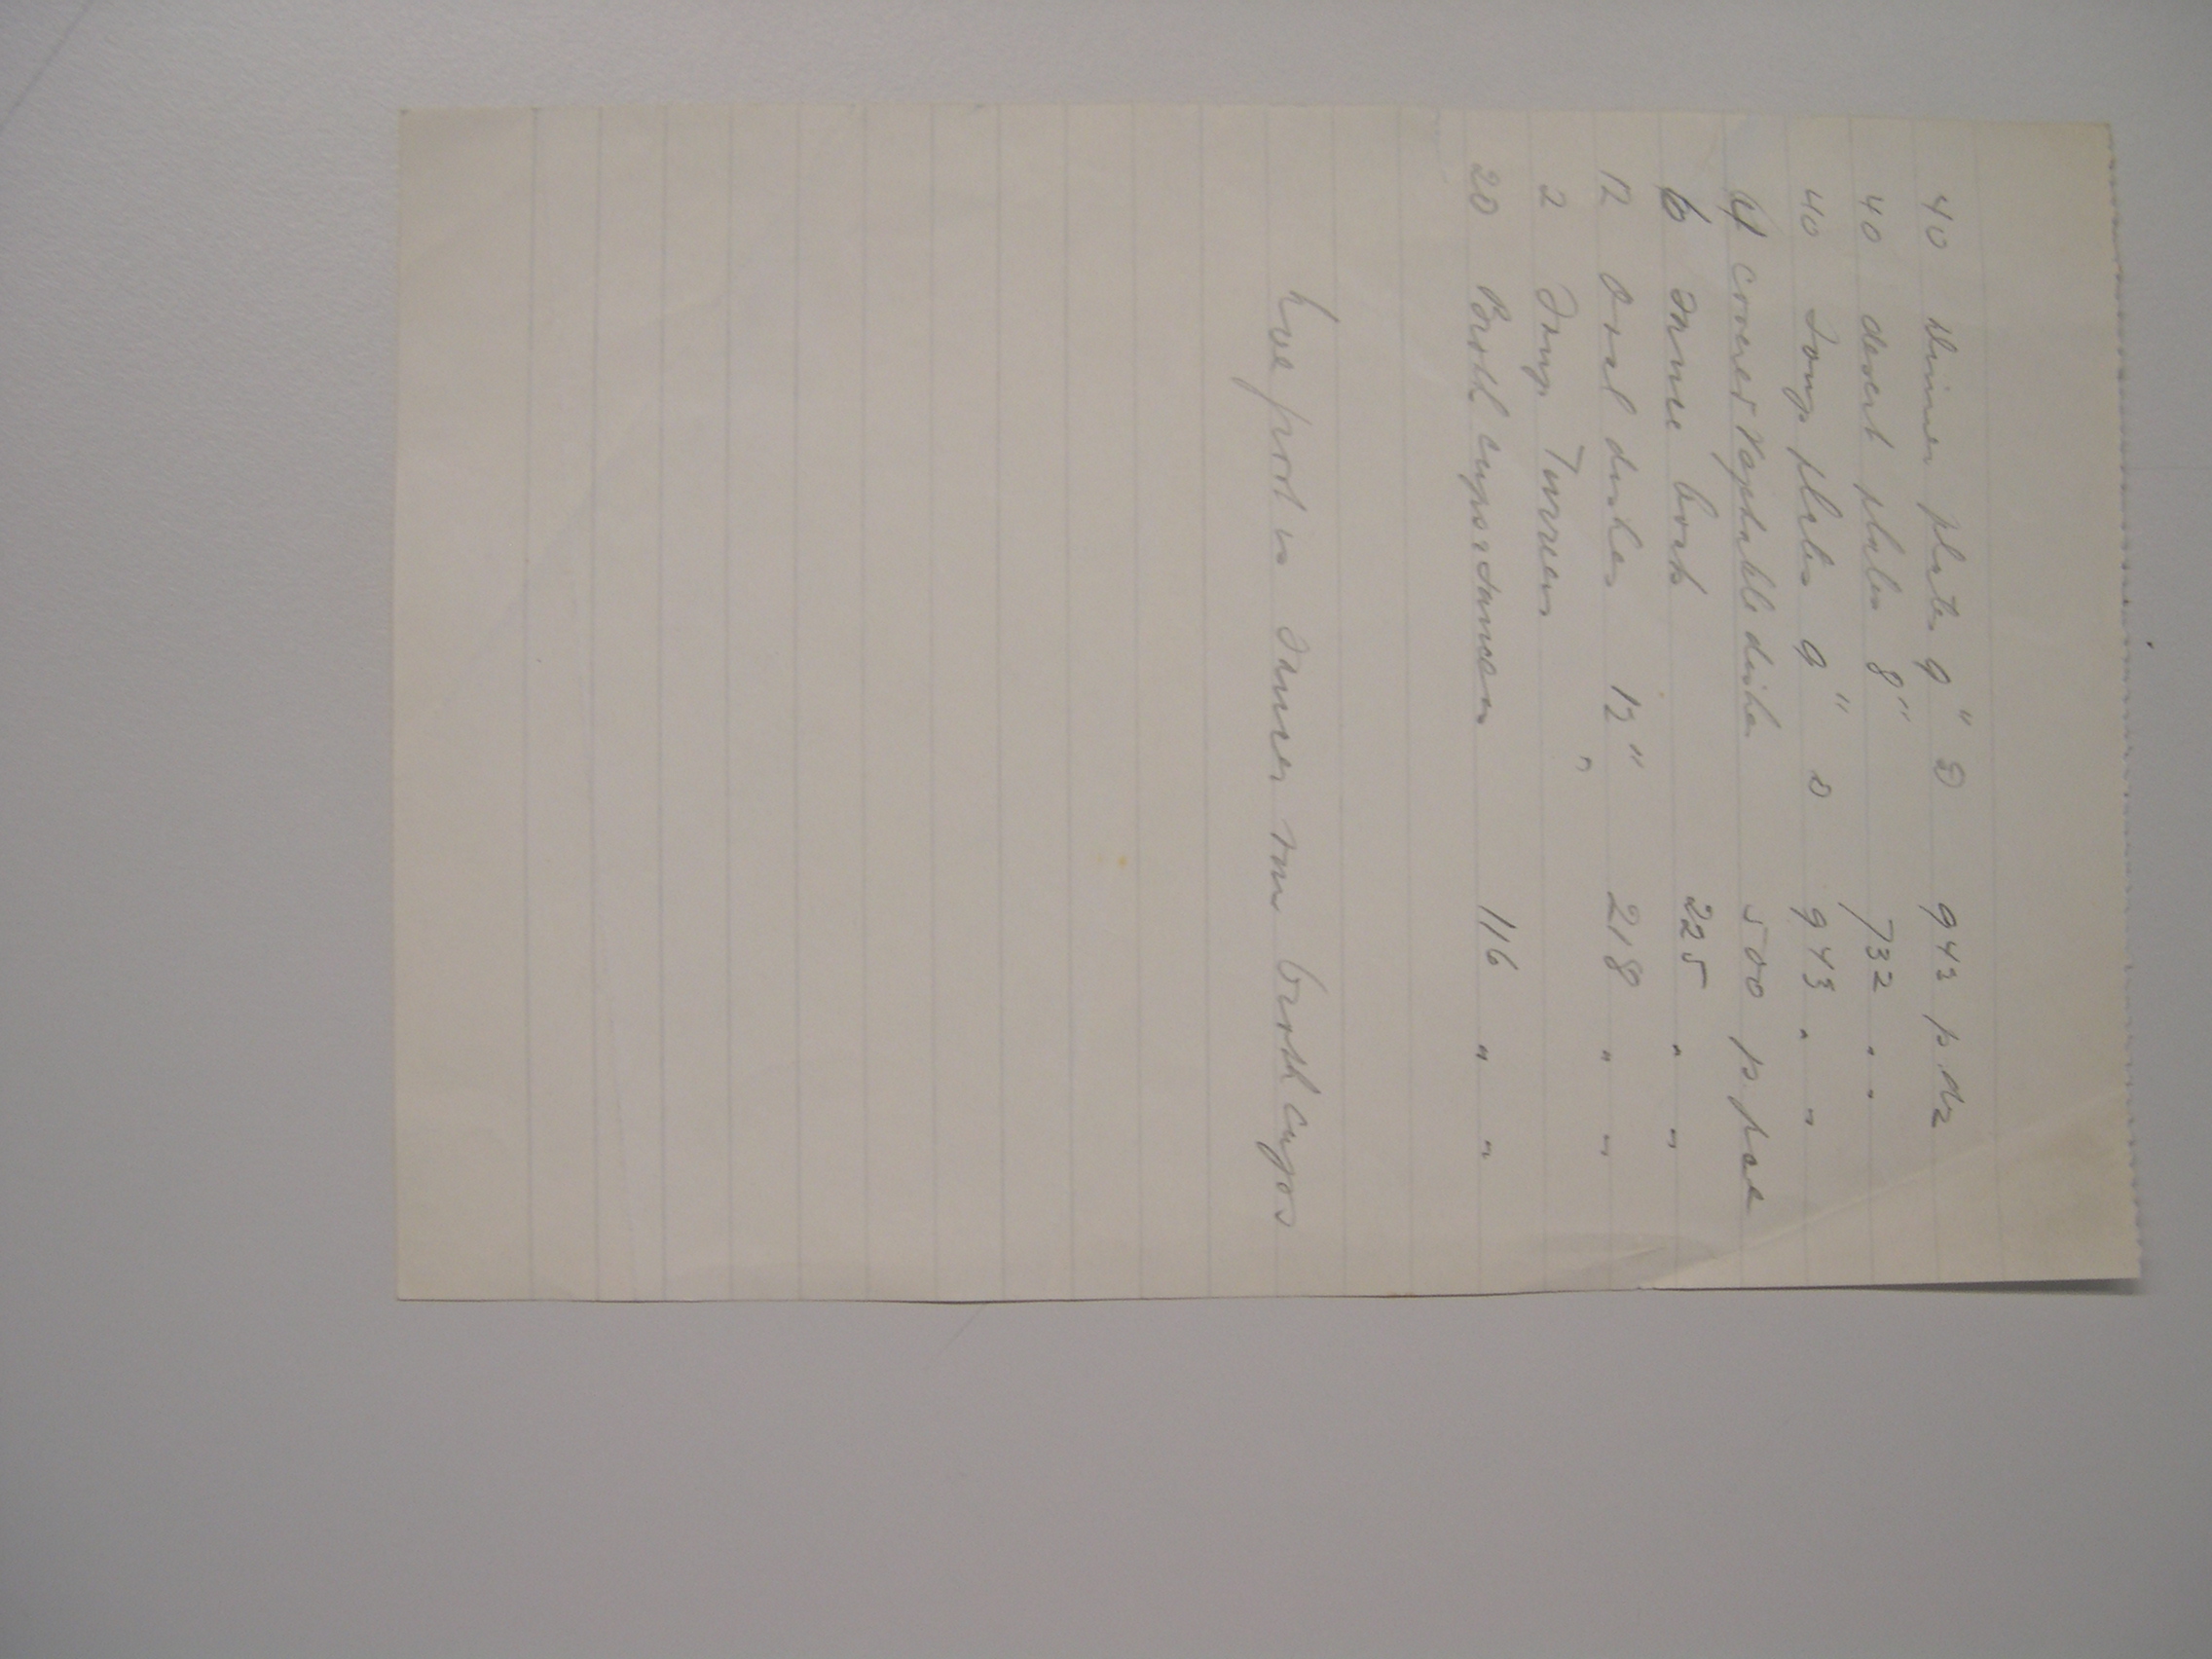 40 Dinner plates 9" D 943 p. dz
40 desert plates 8" 732 " "
40 Soup plates 9" D 943 " "
4 covered Vegetable dishes 500 p.
6 Sauce boats 225 " "
12 Oval dishes 12" 218 " "
2 Soup Turreens "
20 Broth cups & saucers 116 " "
in saucers broth cups